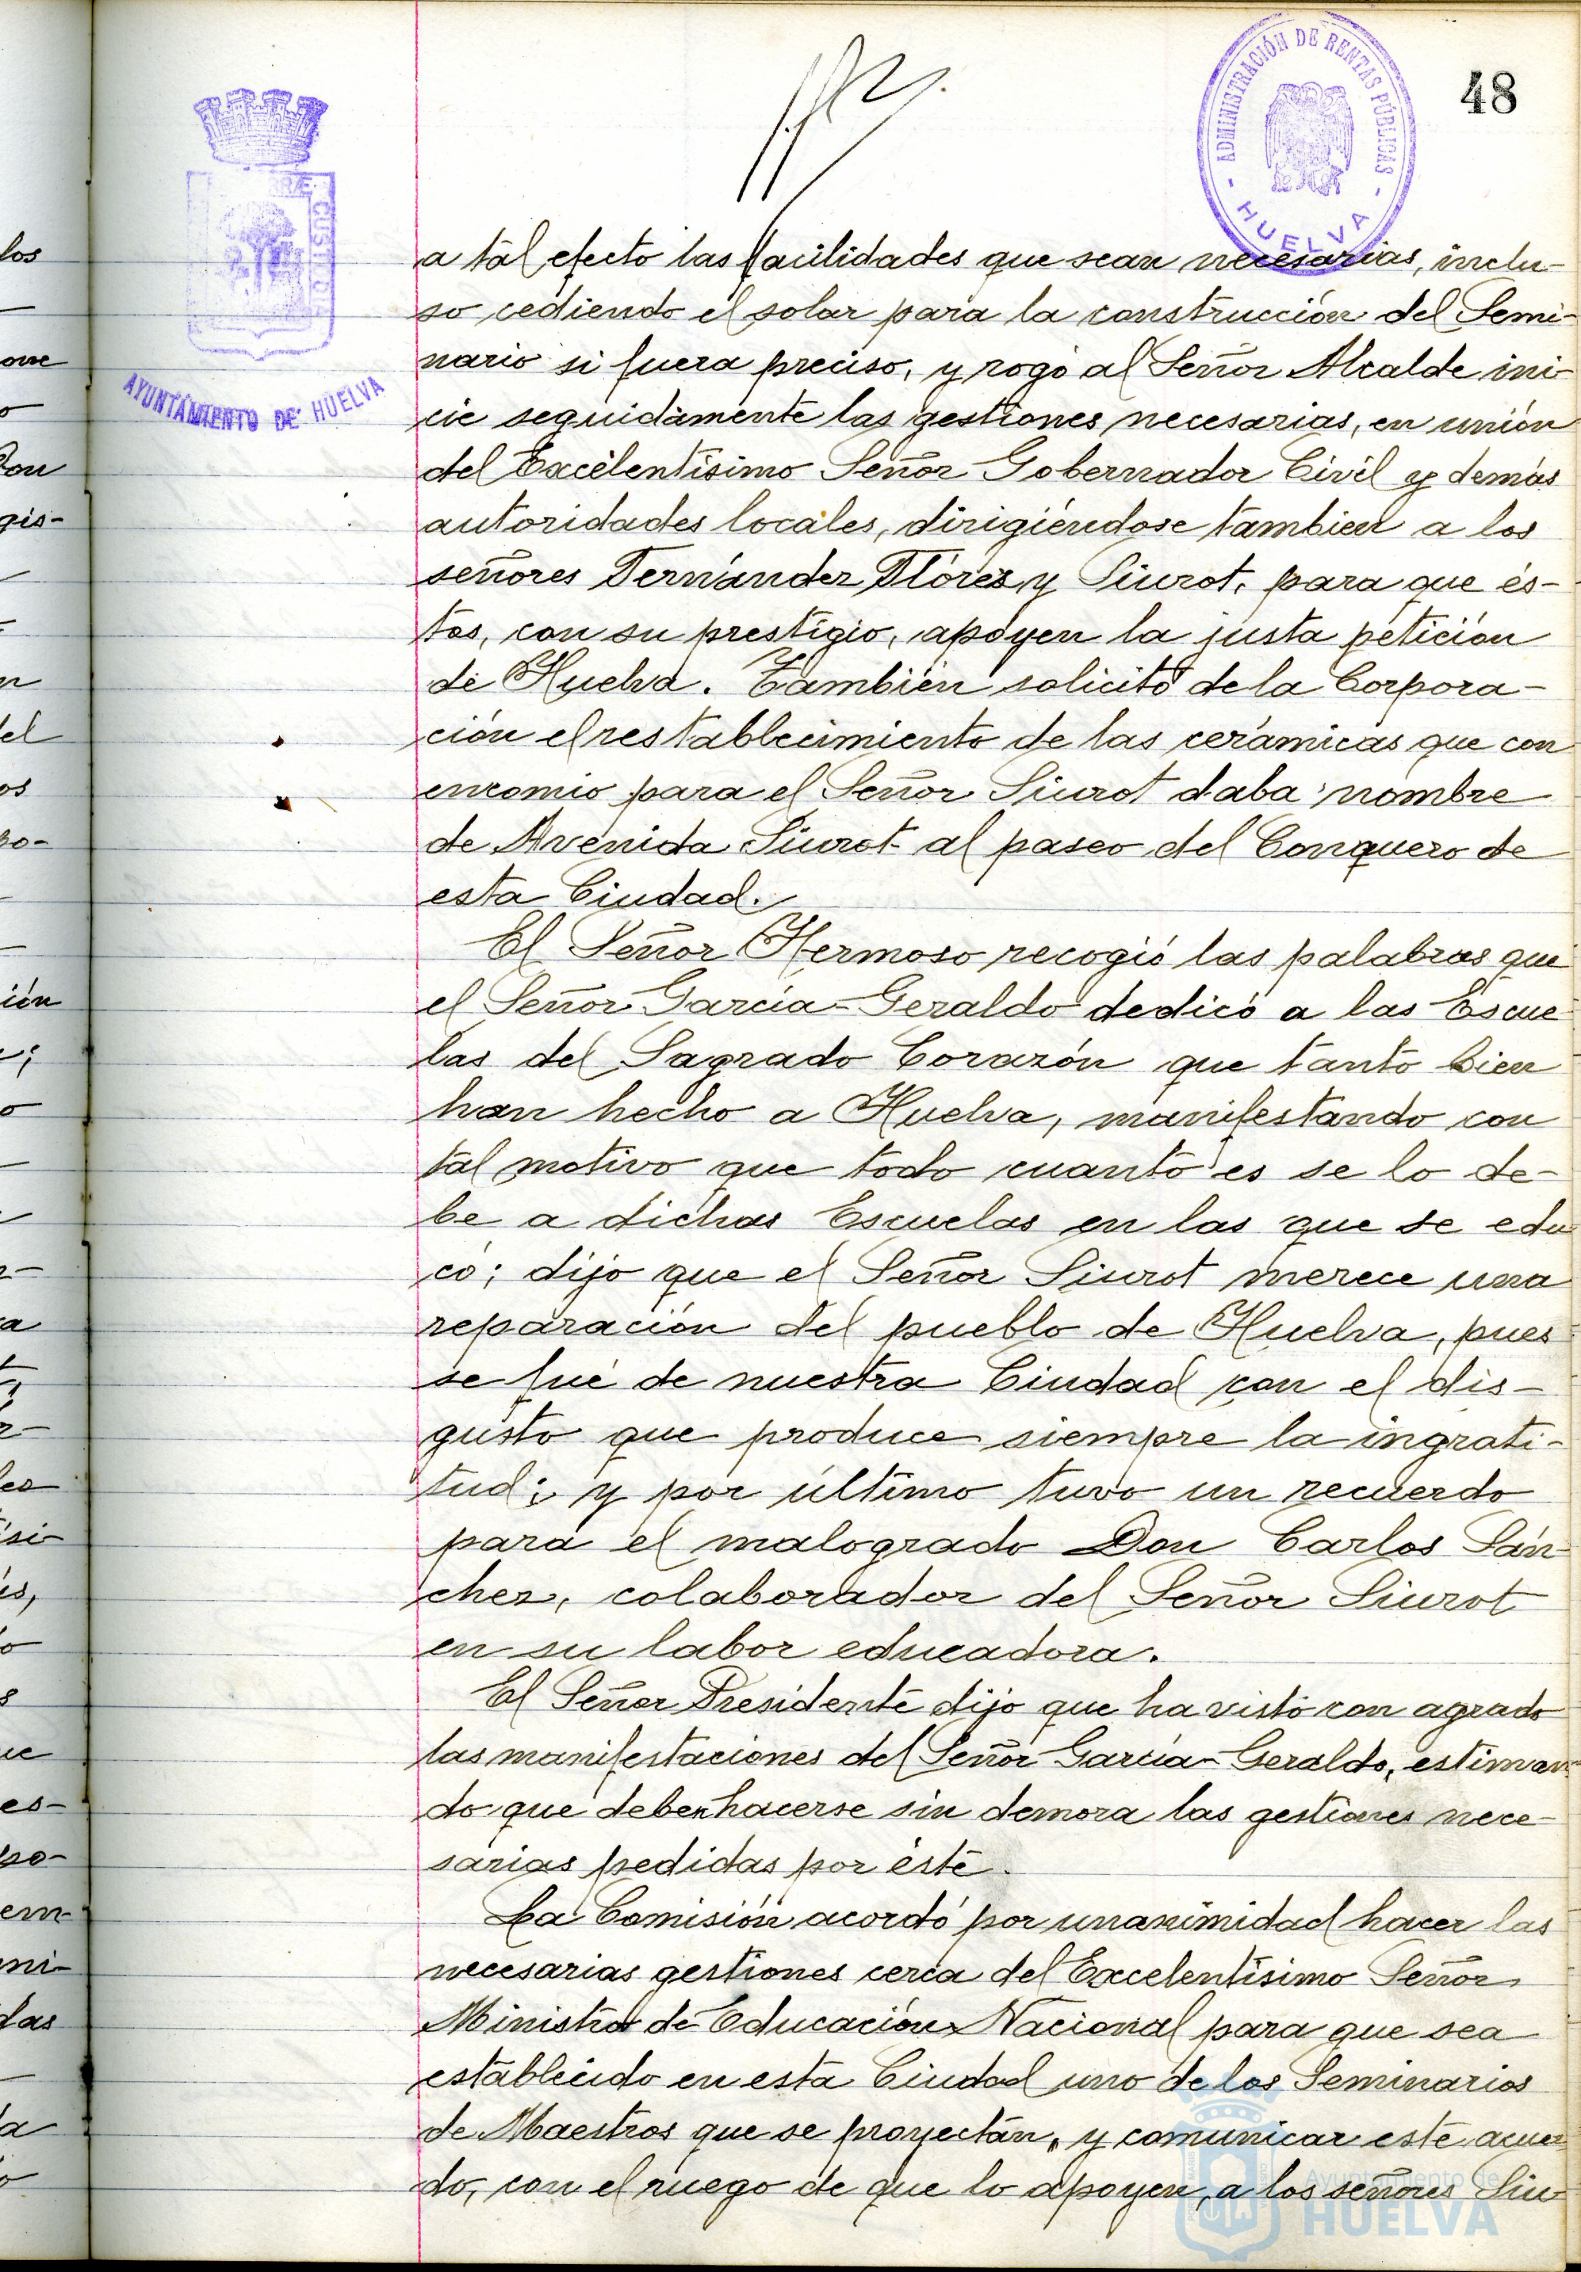 48
ADMINISTRACIÓN DE RENTAS PÚBLICAS
- HUELVA -
CUSTODI
AYUNTAMIENTO DE HUELVA
a tal efecto las facilidades que sean necesarias, inclu-
so cediendo el solar para la construcción del Semi-
nario si fuera preciso, y rogó al Señor Alcalde ini-
cie seguidamente las gestiones necesarias, en unión
del Excelentísimo Señor Gobernador Civil y demás
autoridades locales, dirigiéndose tambien a los
señores Fernández Flórez y Siurot, para que és-
tos, con su prestigio, apoyen la justa petición
de Huelva. También solicitó de la Corpora-
ción el restablecimiento de las cerámicas que con
encomio para el Señor Siurot daba nombre
de Avenida Siurot al paseo del Conquero de
esta Ciudad.
El Señor Hermoso recogió las palabras que
el Señor García-Geraldo dedicó a las Escue
las del Sagrado Corazón que tanto bien
han hecho a Huelva, manifestando con
tal motivo que todo cuanto es se lo de-
be a dichas Escuelas en las que se edu
có; dijo que el Señor Siurot merece una
reparación del pueblo de Huelva, pues
se fué de nuestra Ciudad con el dis-
gusto que produce siempre la ingrati-
tud; y por último tuvo un recuerdo
para el malogrado Don Carlos Sán-
chez, colaborador del Señor Siurot
en su labor educadora.
El Señor Presidente dijo que ha visto con agrado
las manifestaciones del Señor García-Geraldo, estiman
do que deben hacerse sin demora las gestiones nece-
sarias pedidas por éste.
La Comisión acordó por unanimidad hacer las
necesarias gestiones cerca del Excelentísimo Señor
Ministro de Educación Nacional para que sea
establecido en esta Ciudad uno de los Seminarios
de Maestros que se proyectán, y comunicar este acuer
do, con el ruego de que lo apoyen, a los señores Siu
Ayuntamiento de
HUELVA